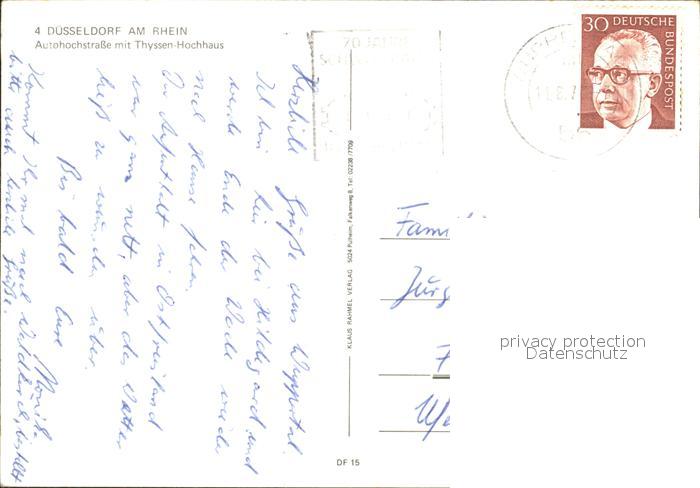 4 DÜSSELDORF AM RHEIN
Autohochstraße mit Thyssen-Hochhaus
70 JAHRE
30 DEUTSCHE
BUNDESPOST
Herzliche Grüße aus Wuppertal.
Ich bin hier bei Hildegard und
werde Ende der Woche wieder
nach Hause fahren.
Der Aufenthalt in Ostfriesland
war ganz nett, aber das Wetter
ließ zu wünschen übrig.
Bis bald Eure
Monika
Kommt Ihr mal nach Waldkirch, bestellt
bitte auch herzliche Grüße.
KLAUS RAHMEL VERLAG 5024 Pulheim, Falkenweg 8, Tel. 02238/7709
Fami
Jürg
privacy protection
Datenschutz
DF 15